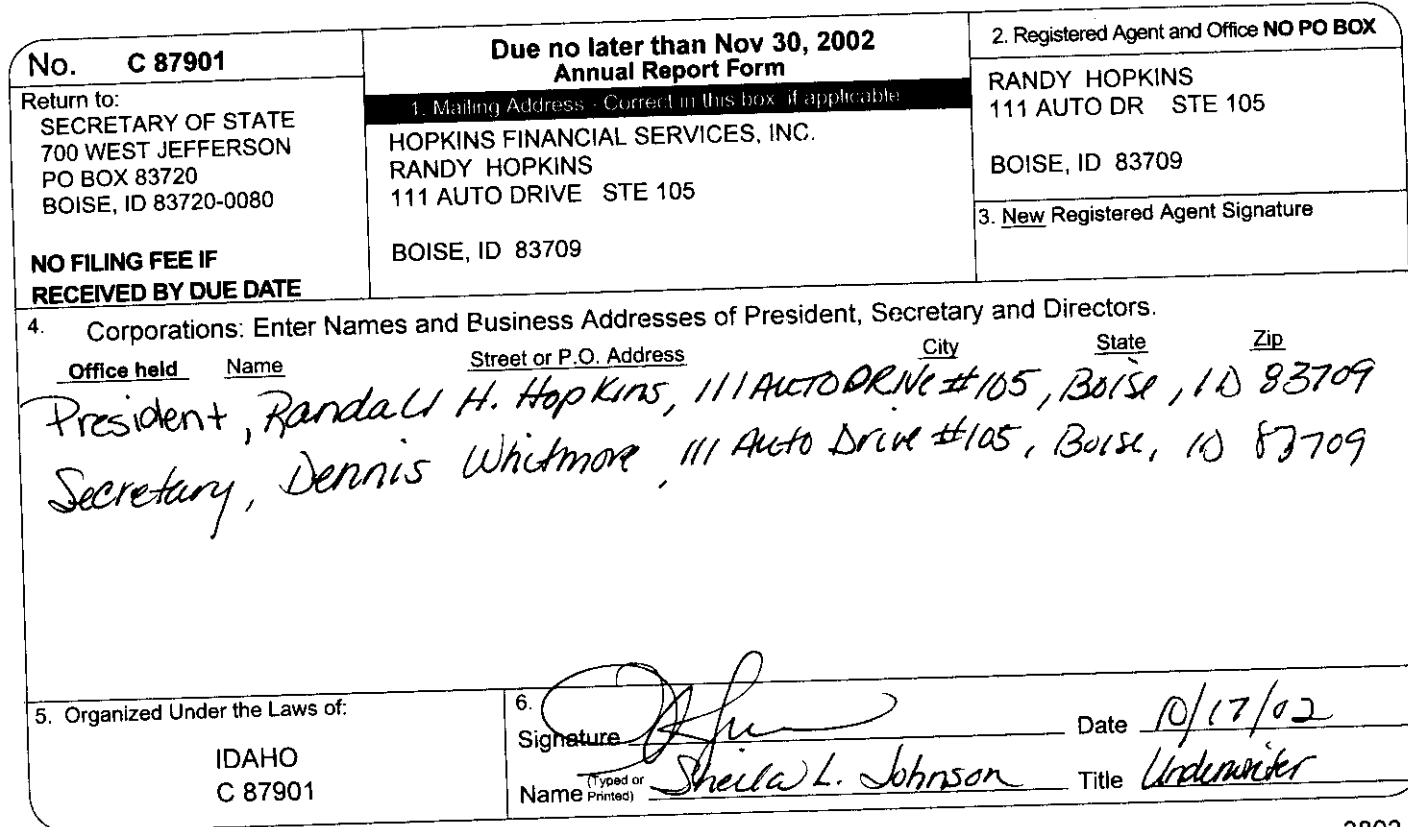 No. C 87901
Return to:
SECRETARY OF STATE
700 WEST JEFFERSON
PO BOX 83720
BOISE, ID 83720-0080
NO FILING FEE IF
RECEIVED BY DUE DATE
Due no later than Nov 30, 2002
Annual Report Form
1. Mailing Address - Correct in this box if applicable
HOPKINS FINANCIAL SERVICES, INC.
RANDY HOPKINS
111 AUTO DRIVE STE 105
BOISE, ID 83709
2. Registered Agent and Office NO PO BOX
RANDY HOPKINS
111 AUTO DR STE 105
BOISE, ID 83709
3. New Registered Agent Signature
4. Corporations: Enter Names and Business Addresses of President, Secretary and Directors.
Office held Name Street or P.O. Address City State Zip
President, Randall H. Hopkins, 111 AUTO DRIVE #105, Boise, ID 83709
Secretary, Dennis Whitmore, 111 Auto Drive #105, Boise, ID 83709
5. Organized Under the Laws of:
IDAHO
C 87901
6.
Signature Date 10/17/02
Name (Typed or Printed) Sheila L. Johnson Title Underwriter